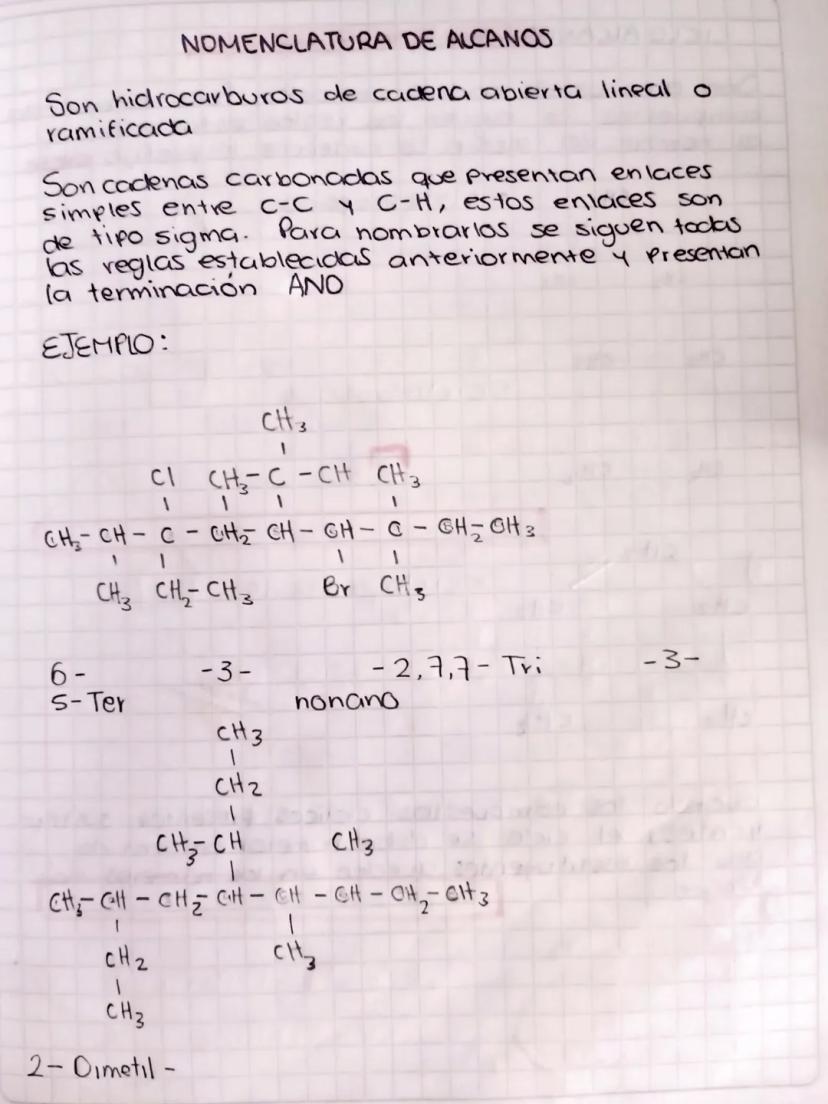 NOMENCLATURA DE ALCANOS
Son hidrocarburos de cadena abierta lineal o
ramificada
Son cadenas carbonadas que presentan enlaces
simples entre C-C y C-H, estos enlaces son
de tipo sigma. Para nombrarlos se siguen todas
las reglas establecidas anteriormente y presentan
la terminación ANO
EJEMPLO:
CH3
Cl CH3 - C - CH CH3
CH3 - CH - C - CH2 - CH - CH - C - CH2 - CH3
CH3 CH2 - CH3 Br CH3
6- -3- -2,7,7- Tri -3-
5-Ter nonano
CH3
CH2
CH3 - CH CH3
CH3 - CH - CH2 - CH - CH - CH - CH2 - CH3
CH2 CH3
CH3
2- Dimetil -